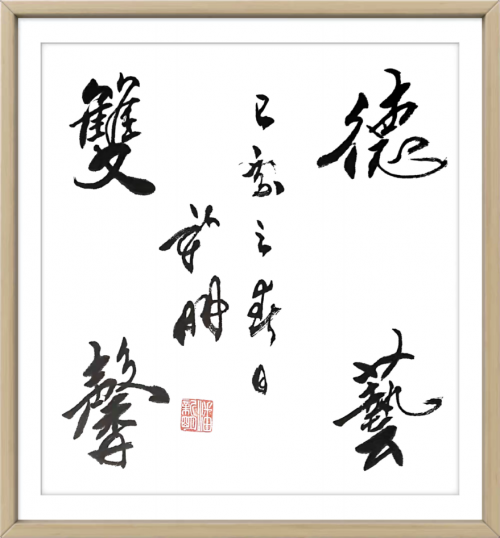 德藝
雙馨
己亥之春日